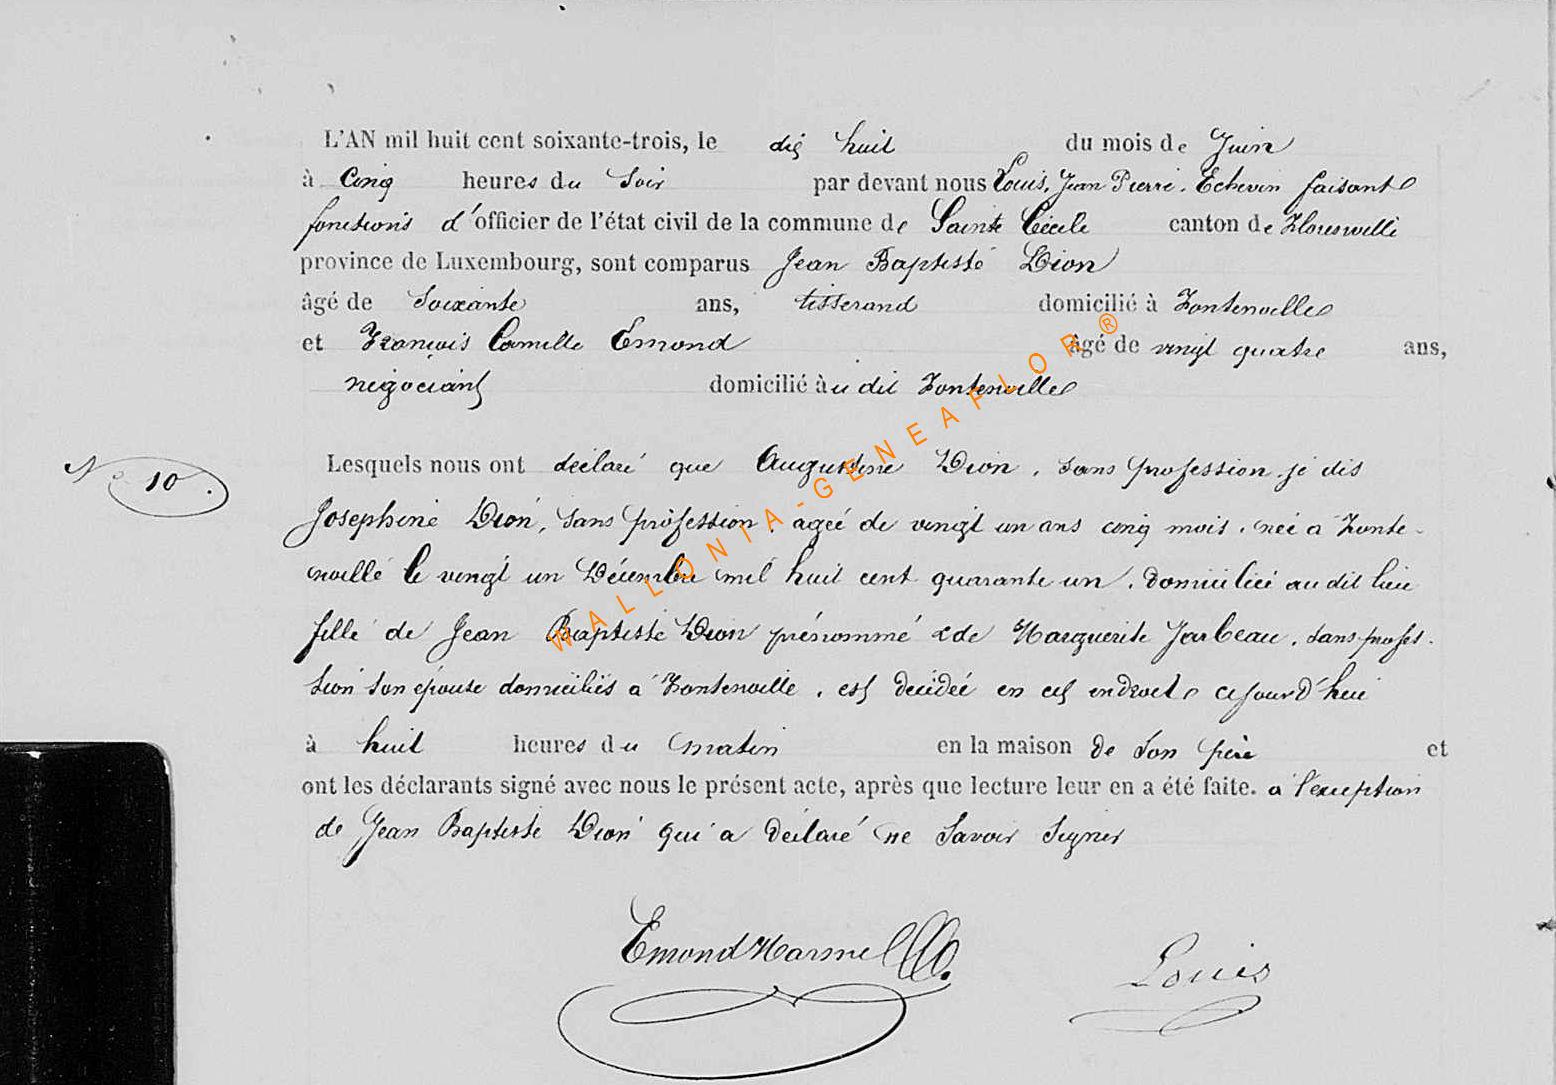 L'AN mil huit cent soixante-trois, le dix huit du mois de Juin
à Cinq heures du Soir par devant nous Louis, Jean Pierre, Echevin faisant
fonctions d'officier de l'état civil de la commune de Sainte Cécile canton de Florenville
province de Luxembourg, sont comparus Jean Baptiste Dion
âgé de Soixante ans, tisserand domicilié à Fontenoille
et François Camille Emond âgé de vingt quatre ans,
négociant domicilié à u dit Fontenoille
Lesquels nous ont déclaré que Augustine Dion, sans profession je dis
N° 10.
Josephine Dion, sans profession, agée de vingt un ans cinq mois, née à Fonte-
noille le vingt un Décembre mil huit cent quarante un, domiciliée au dit lieu
fille de Jean Baptiste Dion prénommé & de Marguerite Jarbeau, sans profes-
sion son épouse domiciliés à Fontenoille, est décédée en cet endroit cejourd'hui
à huit heures du matin en la maison de son père et
ont les déclarants signé avec nous le présent acte, après que lecture leur en a été faite. à l'exception
de Jean Baptiste Dion qui a déclaré ne Savoir Signer
Emond Harmel Louis
WALLONIA-GENEAFLOR®